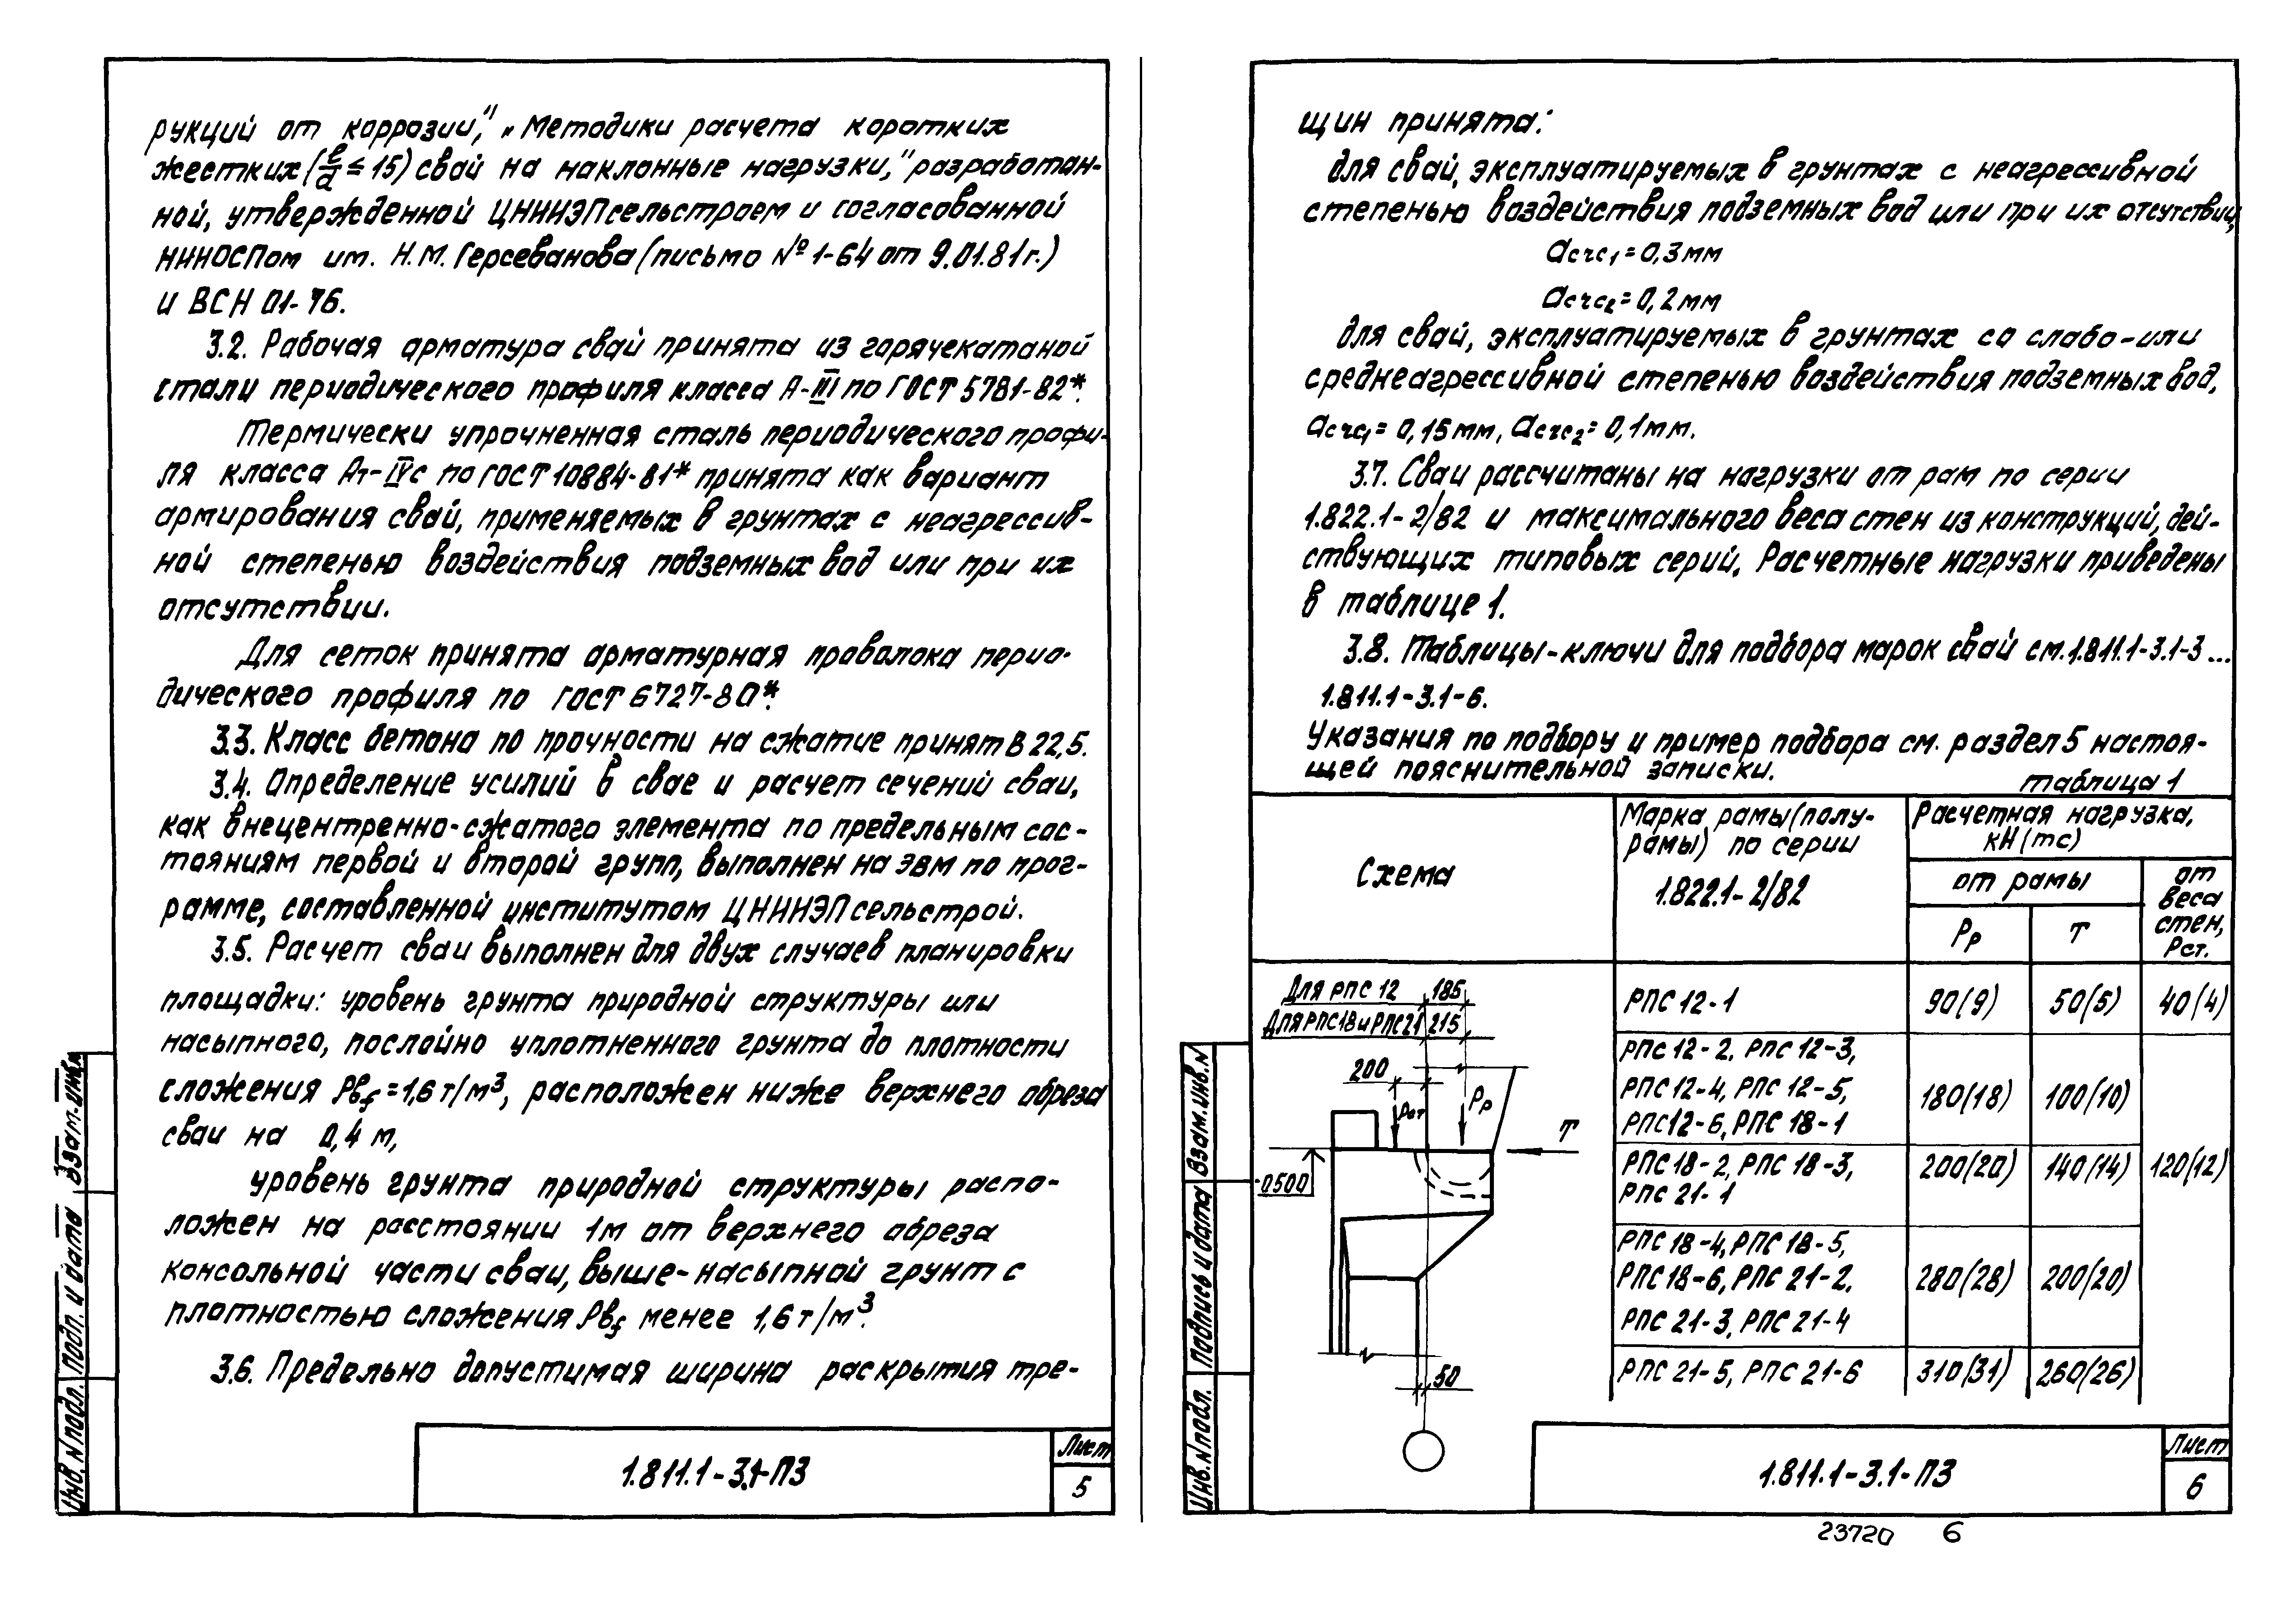 рукций от коррозии," „Методики расчета коротких
жестких (l/d ≤ 15) свай на наклонные нагрузки," разработан-
ной, утвержденной ЦНИИЭПсельстроем и согласованной
НИИОСПом им. Н.М. Герсеванова (письмо № 1-64 от 9.01.81г.)
и ВСН 01-76.
3.2. Рабочая арматура свай принята из горячекатаной
стали периодического профиля класса А-III по ГОСТ 5781-82*.
Термически упрочненная сталь периодического профи-
ля класса Ат-IVс по ГОСТ 10884-81* принята как вариант
армирования свай, применяемых в грунтах с неагрессив-
ной степенью воздействия подземных вод или при их
отсутствии.
Для сеток принята арматурная проволока перио-
дического профиля по ГОСТ 6727-80*.
3.3. Класс бетона по прочности на сжатие принят В 22,5.
3.4. Определение усилий в свае и расчет сечений сваи,
как внецентренно-сжатого элемента по предельным сос-
тояниям первой и второй групп, выполнен на ЭВМ по прог-
рамме, составленной институтом ЦНИИЭПсельстрой.
3.5. Расчет сваи выполнен для двух случаев планировки
площадки: уровень грунта природной структуры или
насыпного, послойно уплотненного грунта до плотности
сложения Рвf = 1,6 т/м³, расположен ниже верхнего обреза
сваи на 0,4 м,
уровень грунта природной структуры распо-
ложен на расстоянии 1м от верхнего обреза
консольной части сваи, выше-насыпной грунт с
плотностью сложения Рвf менее 1,6 т/м³.
3.6. Предельно допустимая ширина раскрытия тре-
Инв. N подл. Подп. и дата Взам. инв. N
1.811.1-3.1-ПЗ
Лист
5
щин принята:
для свай, эксплуатируемых в грунтах с неагрессивной
степенью воздействия подземных вод или при их отсутствии,
acrc1 = 0,3 мм
acrc2 = 0,2 мм
для свай, эксплуатируемых в грунтах со слабо-или
среднеагрессивной степенью воздействия подземных вод,
acrc1 = 0,15 мм, acrc2 = 0,1 мм.
3.7. Сваи рассчитаны на нагрузки от рам по серии
1.822.1-2/82 и максимального веса стен из конструкций, дей-
ствующих типовых серий. Расчетные нагрузки приведены
в таблице 1.
3.8. Таблицы-ключи для подбора марок свай см. 1.811.1-3.1-3 ...
1.811.1-3.1-6.
Указания по подбору и пример подбора см. раздел 5 настоя-
щей пояснительной записки.
таблица 1
Схема
Марка рамы (полу-
рамы) по серии
1.822.1-2/82
Расчетная нагрузка,
кН (тс)
от рамы
Рр
Т
от
веса
стен,
Рст.
РПС 12-1 90(9) 50(5) 40(4)
РПС 12-2, РПС 12-3,
РПС 12-4, РПС 12-5,
РПС 12-6, РПС 18-1
180(18) 100(10)
РПС 18-2, РПС 18-3,
РПС 21-1
200(20) 140(14) 120(12)
РПС 18-4, РПС 18-5,
РПС 18-6, РПС 21-2,
РПС 21-3, РПС 21-4
280(28) 200(20)
РПС 21-5, РПС 21-6 310(31) 260(26)
Для РПС 12 185
Для РПС18 и РПС21 215
200
Рст
Рр
Т
-0.500
50
Инв. N подл. Подпись и дата Взам. инв. N
1.811.1-3.1-ПЗ
Лист
6
23720 6